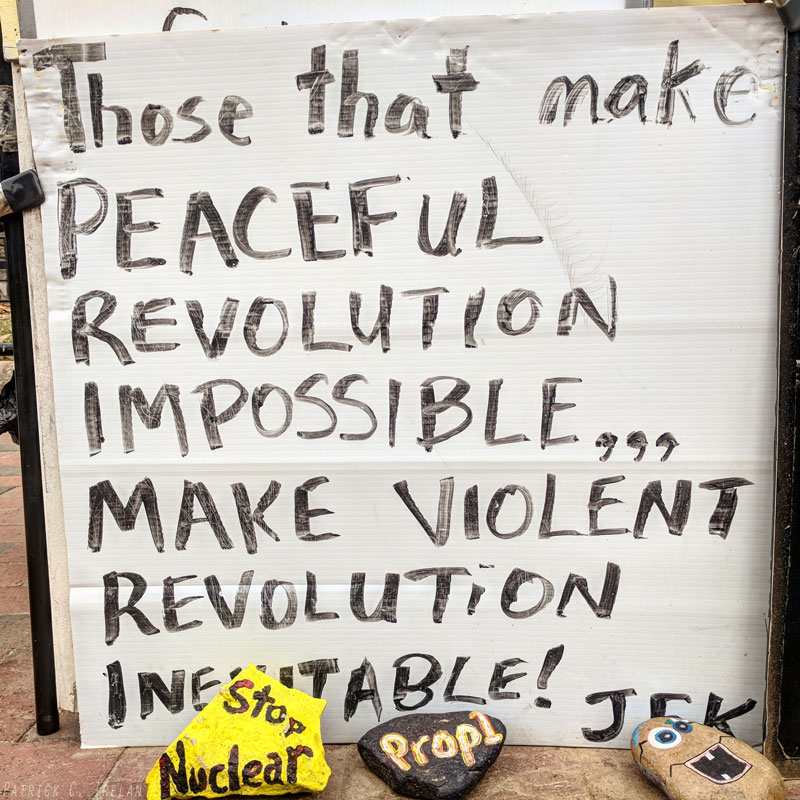 Those that make
PEACEFUL
REVOLUTION
IMPOSSIBLE,,,
MAKE VIOLENT
REVOLUTION
INEVITABLE!
JFK
Stop
Nuclear
Prop1
PATRICK C. IRELAN